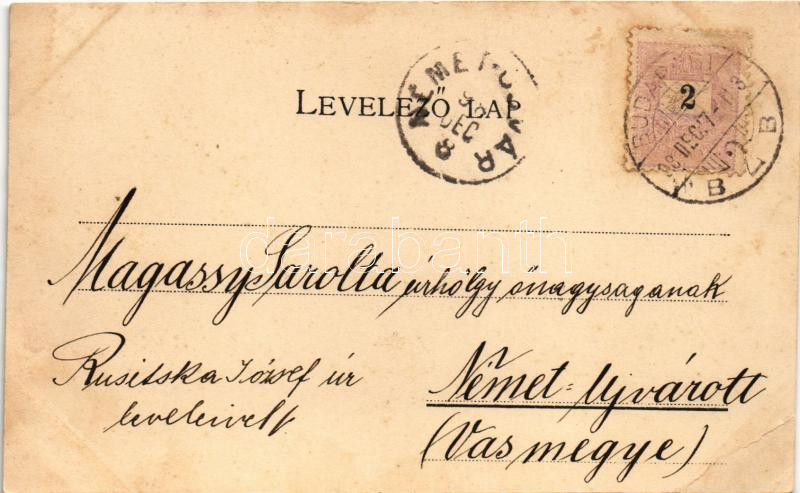 LEVELEZŐ LAP
NÉMET-UJVÁR
98
DEC
8
2
BUDAPEST
98 DEC. 7
B B
darabanth
Magassy Sarolta úrhölgy őnagyságanak
Rusitska József úr
leveleivel
Német-Ujvárott
(Vasmegye)